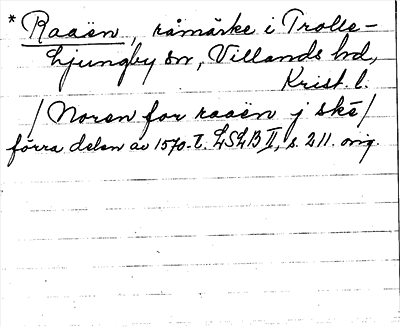 * Raaën, råmärke i Trolle-
Ljungby sn, Villands hd,
Krist. l.
/Noren for raaën j skē/
förra delen av 1570-t. LSLB II, s. 211. orig.